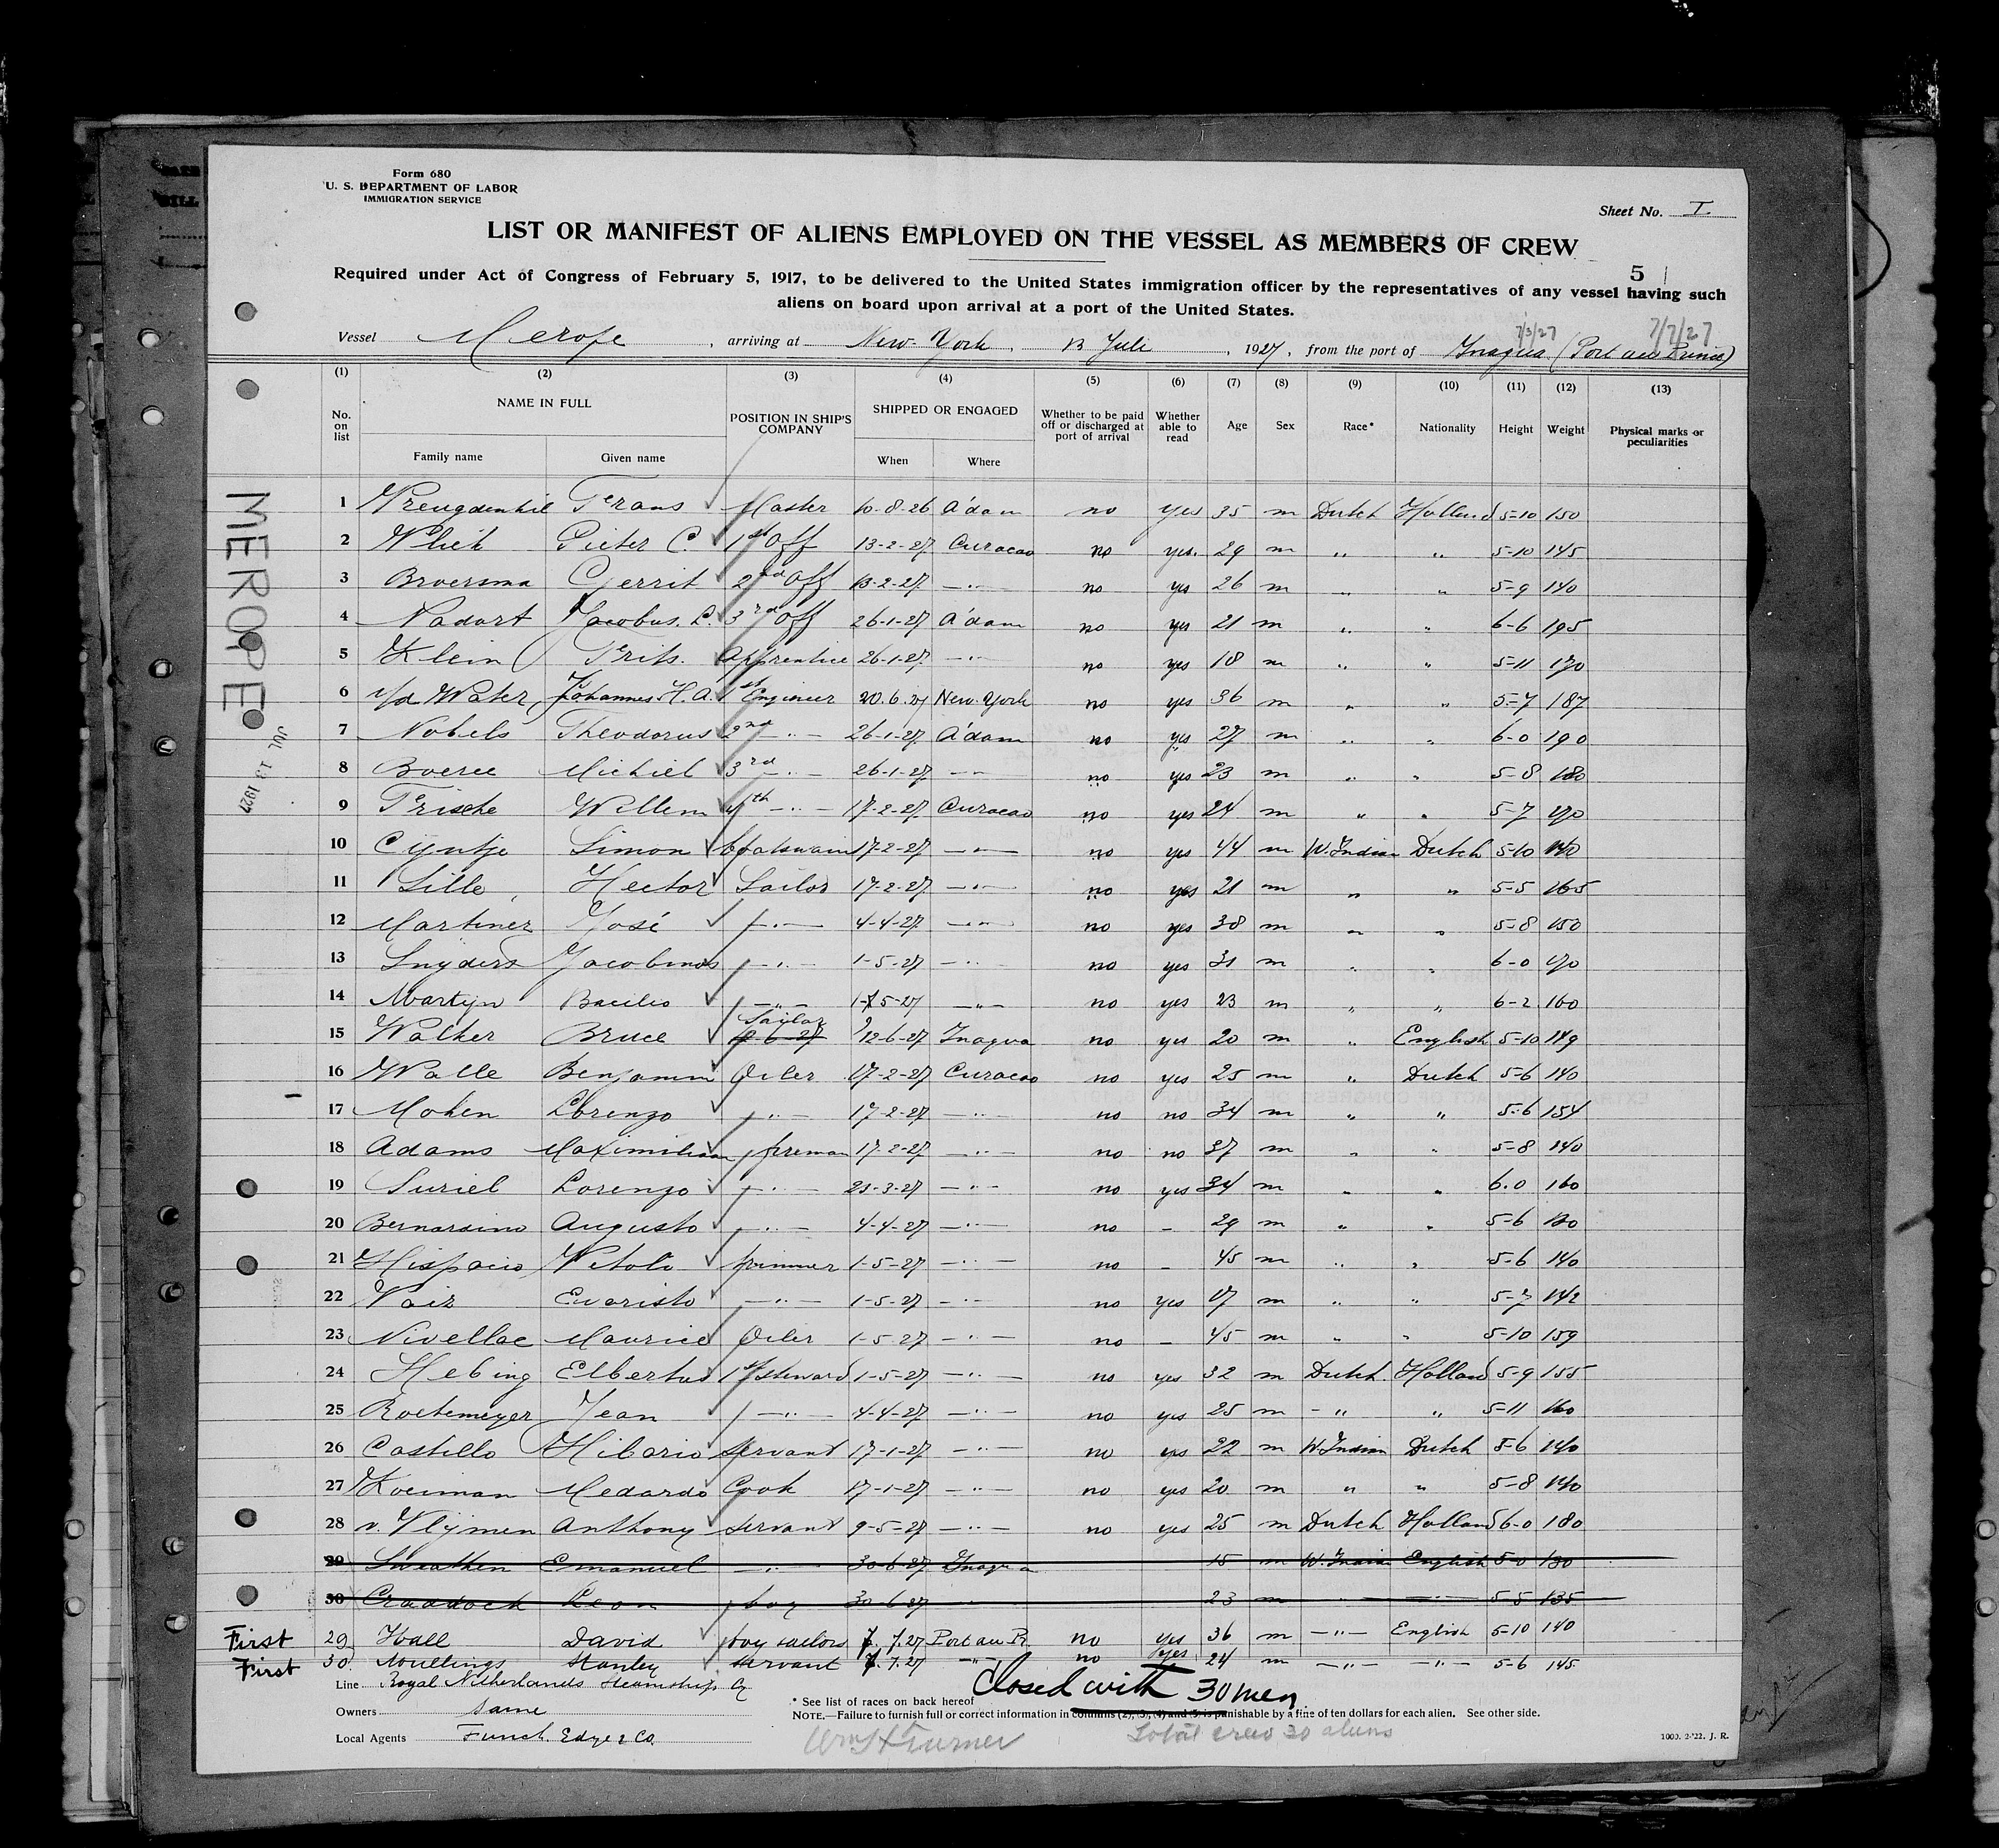 Form 680
U. S. DEPARTMENT OF LABOR
IMMIGRATION SERVICE
Sheet No. I
LIST OR MANIFEST OF ALIENS EMPLOYED ON THE VESSEL AS MEMBERS OF CREW
5
Required under Act of Congress of February 5, 1917, to be delivered to the United States immigration officer by the representatives of any vessel having such
aliens on board upon arrival at a port of the United States.
7/3/27 7/7/27
Vessel Merope, arriving at New York, 13 Juli, 1927, from the port of Inagua (Port au Prince)
(1) (2) (3) (4) (5) (6) (7) (8) (9) (10) (11) (12) (13)
No. on list NAME IN FULL Family name Given name POSITION IN SHIP'S COMPANY SHIPPED OR ENGAGED When Where Whether to be paid off or discharged at port of arrival Whether able to read Age Sex Race* Nationality Height Weight Physical marks or peculiarities
MEROPE
JUL 13 1927
1 Vreugdenhil Frans Master 10-8-26 A'dam no yes 35 m Dutch Holland 5-10 150
2 Pieter C. 1st Off 13-2-27 Curacao no yes. 29 m " " 5-10 145
3 Broersma Gerrit 2nd Off 13-2-27 -"- no yes 26 m " " 5-9 140
4 Nadort Jacobus. L. 3rd Off 26-1-27 A'dam no yes 21 m " " 6-6 195
5 Klein Frits. Apprentice 26-1-27 -"- no yes 18 m " " 5-11 170
6 v/d Water, Johannes H.A. 1st Engineer 20.6.27 New-York no yes 36 m " " 5-7 187
7 Nobels Theodorus 2nd -"- 26-1-27 A'dam no yes 27 m " " 6-0 190
8 Boeree Michiel 3rd -"- 26-1-27 -"- no yes 23 m " " 5-8 180
9 Frische Willem 4th -"- 17-2-27 Curacao no yes 24 m " " 5-7 170
10 Cijntje Simon boatswain 17-2-27 -"- no yes 44 m W.Indian Dutch 5-10
11 Lille Hector Sailor 17-2-27 -"- no yes 21 m " " 5-5 165
12 Martinez José -"- 4-4-27 -"- no yes 38 m " " 5-8 150
13 Snijders Jacobinus -"- 1-5-27 -"- no yes 31 m " " 6-0 170
14 Martijn Bacilio -"- 1-5-27 -"- no yes 23 m " " 6-2 160
15 Walker Bruce Sailor 12-6-27 Inagua no yes 20 m " English 5-10 149
16 Walle Benjamin Oiler 17-2-27 Curacao no yes 25 m " Dutch 5-6 140
17 Mohen Lorenzo -"- 17-2-27 -"- no no 34 m " " 5-6 154
18 Adams Maximiliaan fireman 17-2-27 -"- no no 37 m " " 5-8 140
19 Suriel Lorenzo -"- 21-3-27 -"- no yes 34 m " " 6.0 160
20 Bernardino Augusto -"- 4-4-27 -"- no - 29 m " " 5-6 130
21 trimmer 1-5-27 -"- no - 45 m " " 5-6 140
22 Evaristo -"- 1-5-27 -"- no yes 17 m " " 5-7 142
23 Nivellac Maurice Oiler 1-5-27 -"- no - 45 m " " 5-10 159
24 Hebing Elbertus 1st steward 1-5-27 -"- no yes 32 m Dutch. Holland 5-9 155
25 Roetemeyer Jean -"- 4-4-27 -"- no yes 25 m -"- " 5-11 160
26 Castillo Hilario servant 17-1-27 -"- no yes 22 m W.Indian Dutch 5-6 140
27 Koeiman Medardo Cook 17-1-27 -"- no yes 20 m " " 5-8 140
28 v. Vlijmen Anthony servant 9-5-27 -"- no yes 25 m Dutch Holland 6-0 180
29 Emanuel -"- 30-6-27 Inagua 15 m W.Indian English 5-0 130
30 Craddock Leon boy 30-6-27 23 m -"- 5-5 135
First 29 Hall David boy sailors 7.7.27 Port au Pr. no yes 36 m -"- English 5-10 140
First 30. Moultings Stanley servant 7.7.27 -"- no yes 24 m -"- -"- 5-6 145
Line Royal Netherlands Steamship Cy
Closed with 30 men.
* See list of races on back hereof
Owners Same
NOTE.—Failure to furnish full or correct information in columns (2), (3), (4) and (5) is punishable by a fine of ten dollars for each alien. See other side.
Local Agents Funch. Edye & Co.
Wm H Turner
Total crew 30 aliens
1000. 2-'22. J. R.